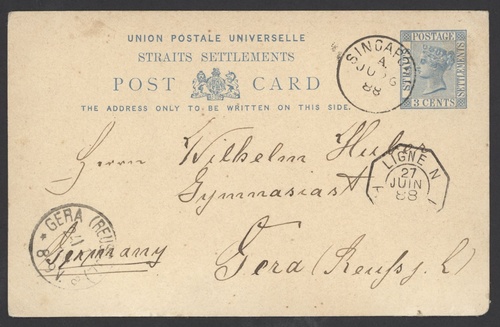 UNION POSTALE UNIVERSELLE
STRAITS SETTLEMENTS
POST CARD
THE ADDRESS ONLY TO BE WRITTEN ON THIS SIDE.
POSTAGE
3 CENTS
A
JU
88
Herrn Wilhelm
Gymnasiast
LIGNE N
27
JUIN
88
GERA (REUSS
Germany
Gera (Reuss j. L)